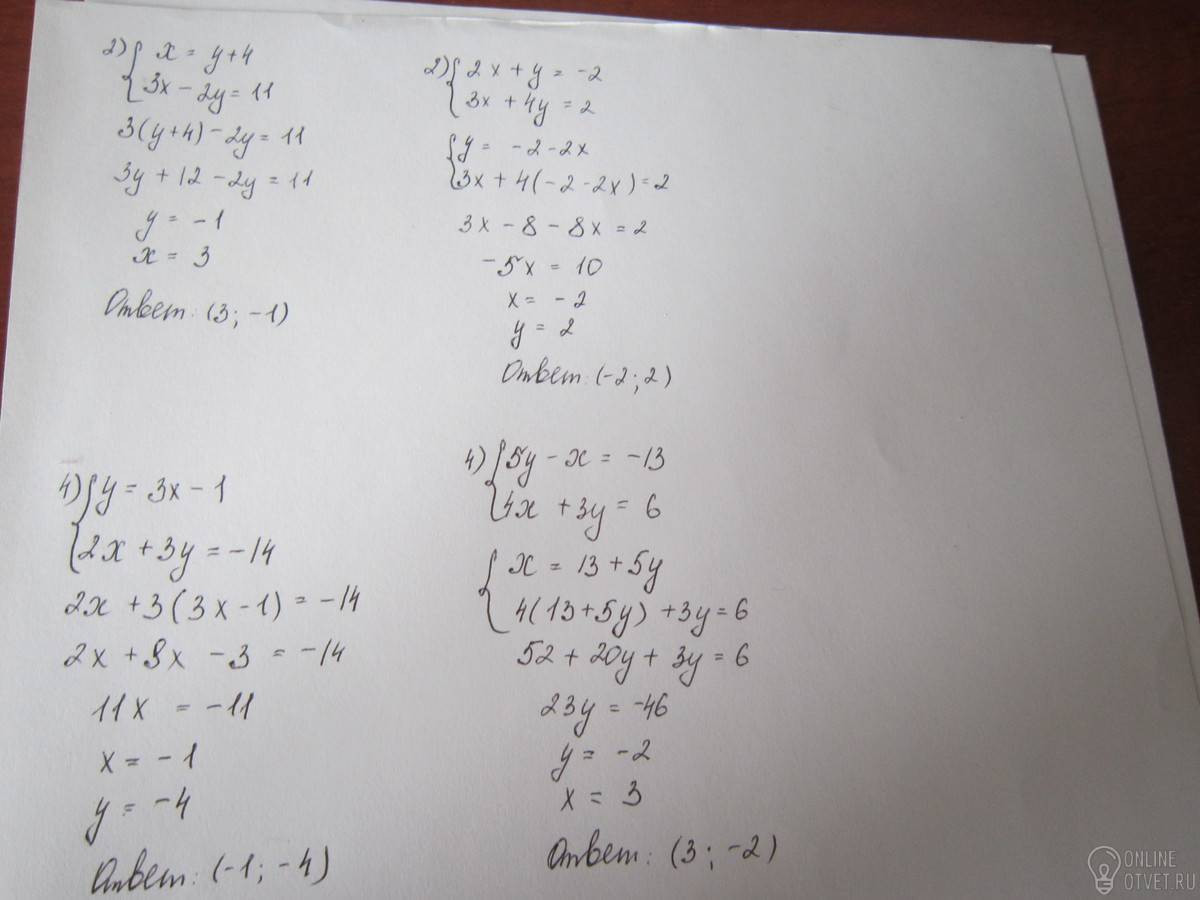 2) { x = y+4
3x - 2y = 11
3(y+4) - 2y = 11
3y + 12 - 2y = 11
y = -1
x = 3
Ответ: (3; -1)
2) { 2x + y = -2
3x + 4y = 2
{ y = -2-2x
3x + 4(-2-2x) = 2
3x - 8 - 8x = 2
-5x = 10
x = -2
y = 2
Ответ: (-2; 2)
4) { y = 3x - 1
2x + 3y = -14
2x + 3(3x-1) = -14
2x + 9x - 3 = -14
11x = -11
x = -1
y = -4
Ответ: (-1; -4)
4) { 5y - x = -13
4x + 3y = 6
{ x = 13 + 5y
4(13+5y) + 3y = 6
52 + 20y + 3y = 6
23y = -46
y = -2
x = 3
Ответ: (3; -2)
ONLINE
OTVET.RU